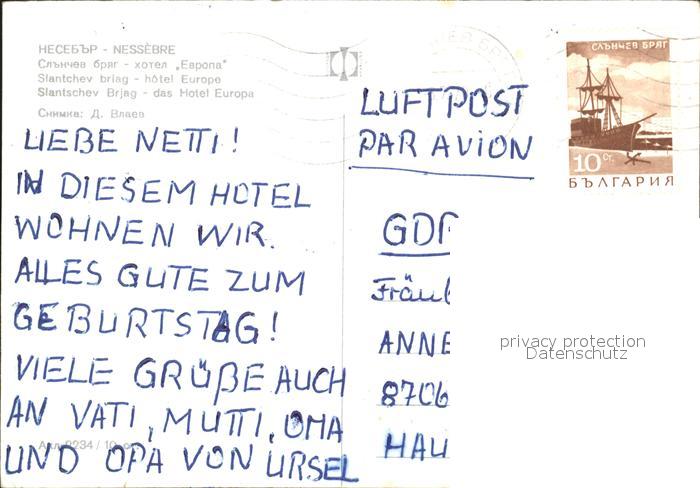 НЕСЕБЪР - NESSÈBRE
Слънчев бряг - хотел „Европа"
Slantchev briag - hôtel Europe
Slantschev Brjag - das Hotel Europa
Снимка: Д. Влаев
LIEBE NETTI!
IN DIESEM HOTEL
WOHNEN WIR.
ALLES GUTE ZUM
GEBURTSTAG!
VIELE GRÜßE AUCH
AN VATI, MUTTI, OMA
UND OPA VON URSEL
LUFTPOST
PAR AVION
СЛЪНЧЕВ БРЯГ
10 СТ.
БЪЛГАРИЯ
ANNE
8706
HAU
privacy protection
Datenschutz